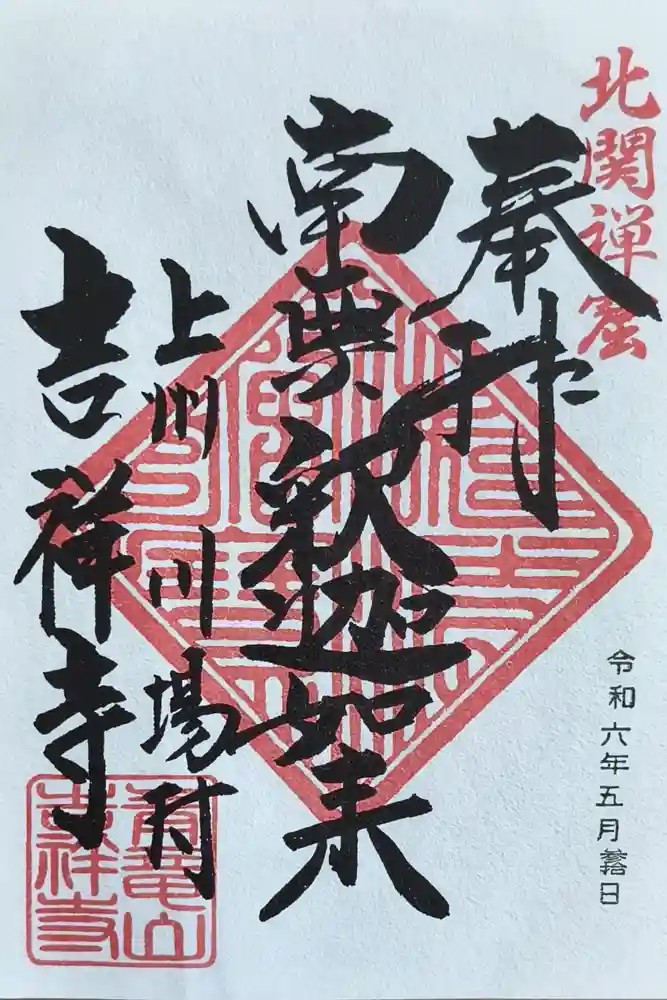 北関禅窟
奉拝
令和六年五月日
南無釈迦如来
上州川場村
吉祥寺
青竜山
吉祥寺